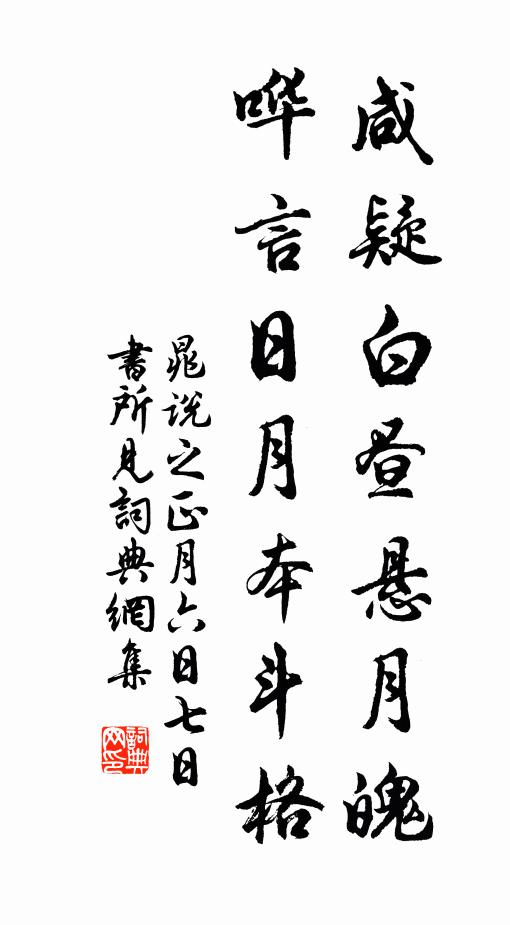 咸疑白昼悬月魄
哗言日月本斗格
晁说之正月六日七日
書所見詞典網集
詞典网印